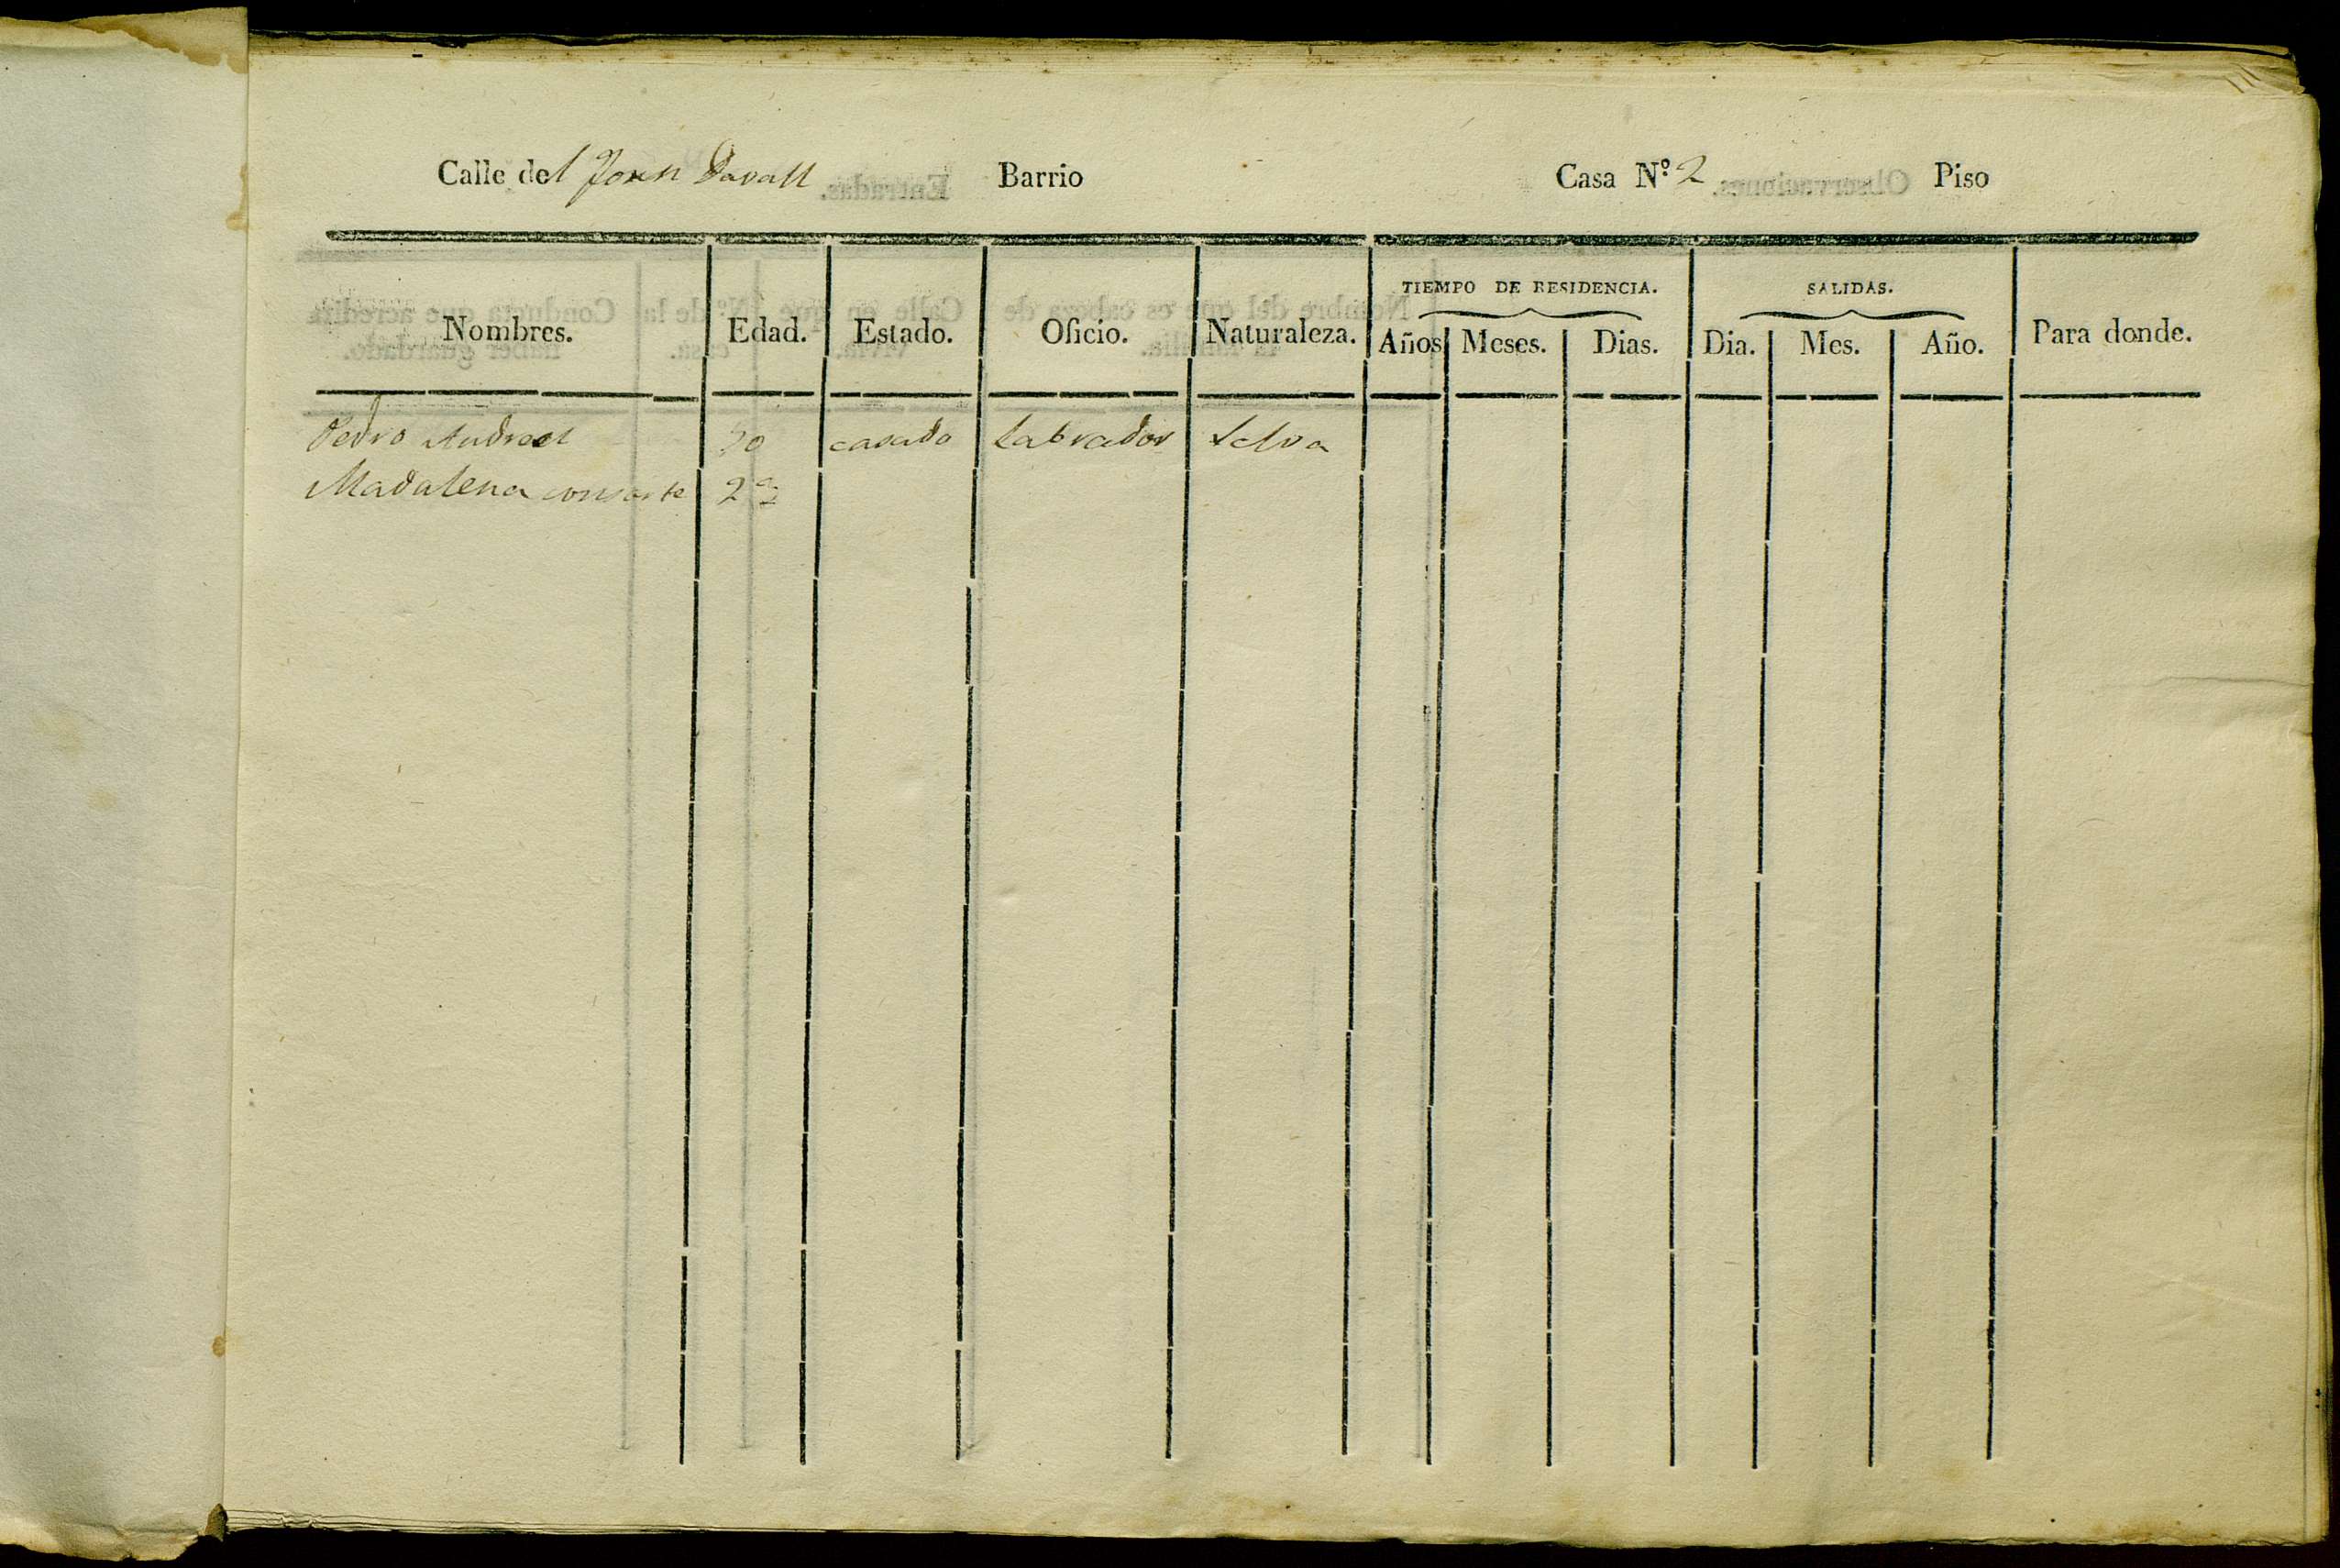 Calle del Forn Davall Barrio Casa N.º 2 Piso
TIEMPO DE RESIDENCIA. SALIDAS.
Nombres. Edad. Estado. Oficio. Naturaleza. Años Meses. Dias. Dia. Mes. Año. Para donde.
Pedro Andreu casado Labrador Selva
Madalena consorte